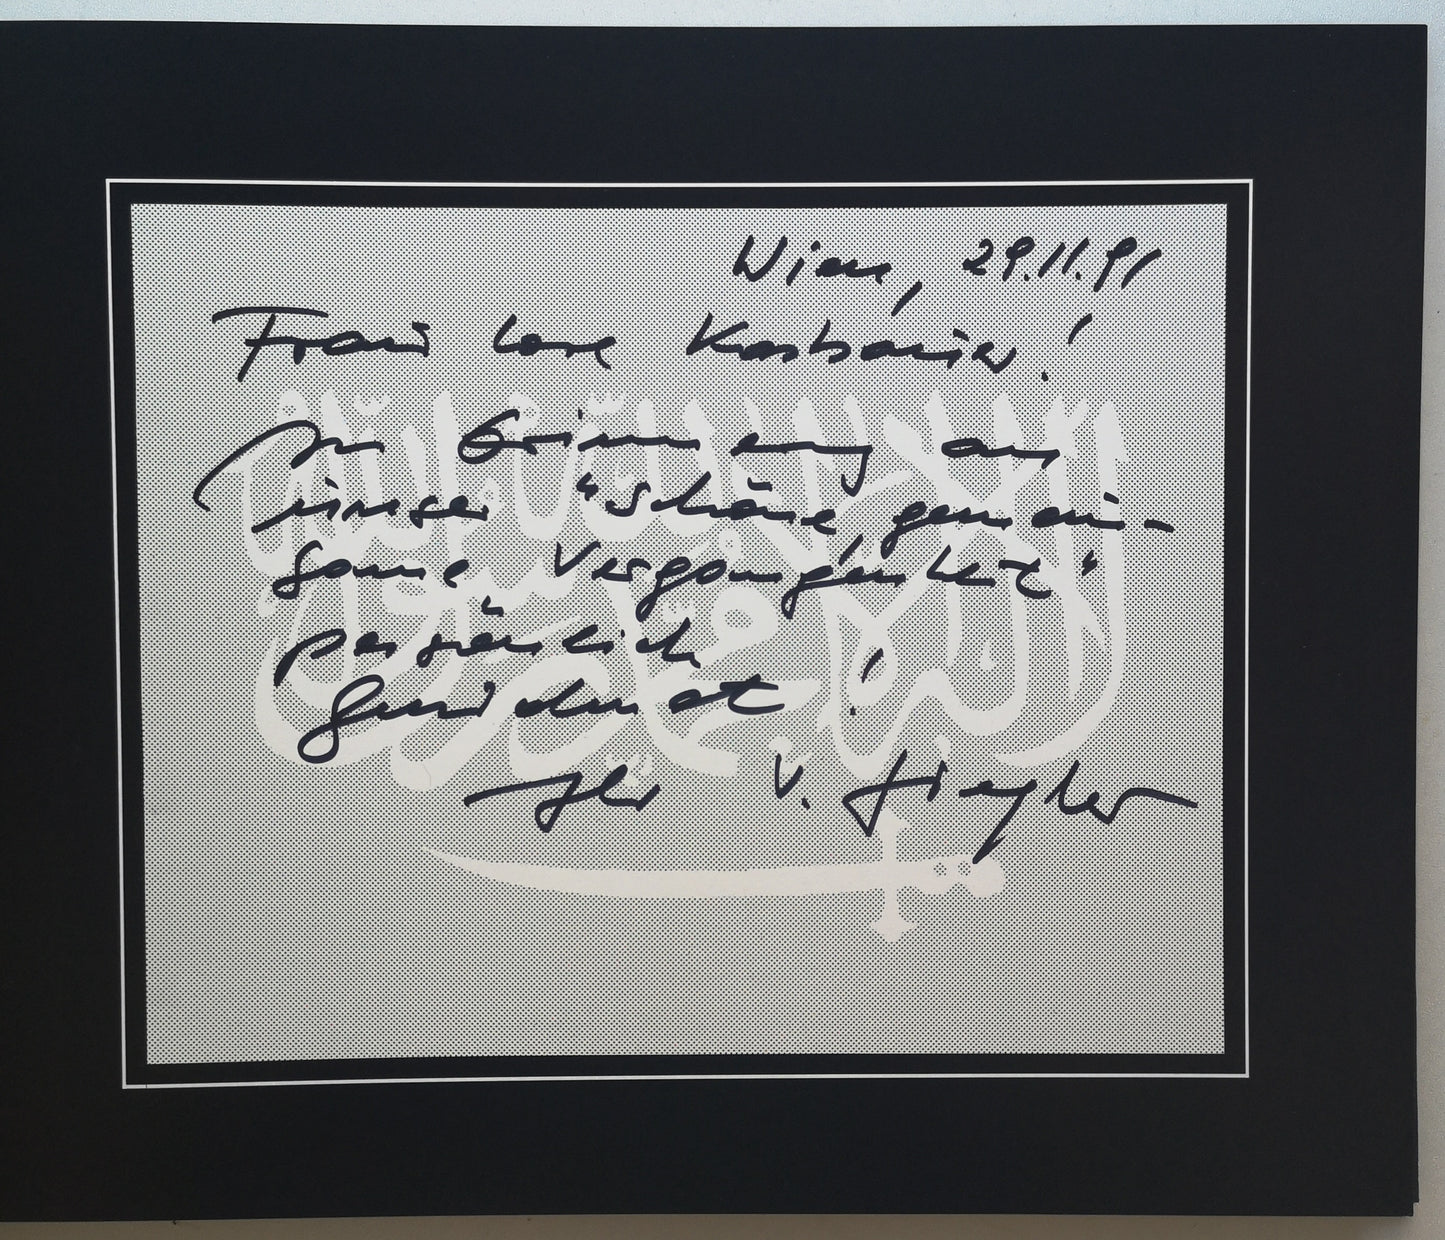 Wien, 29.11.91
Frau Lore
In Erinnerung an
unser "schöne, gemein-
same Vergangenheit"
persönlich
gewidmet!
Ihr V. Ziegler
لا إله إلا الله محمد رسول الله